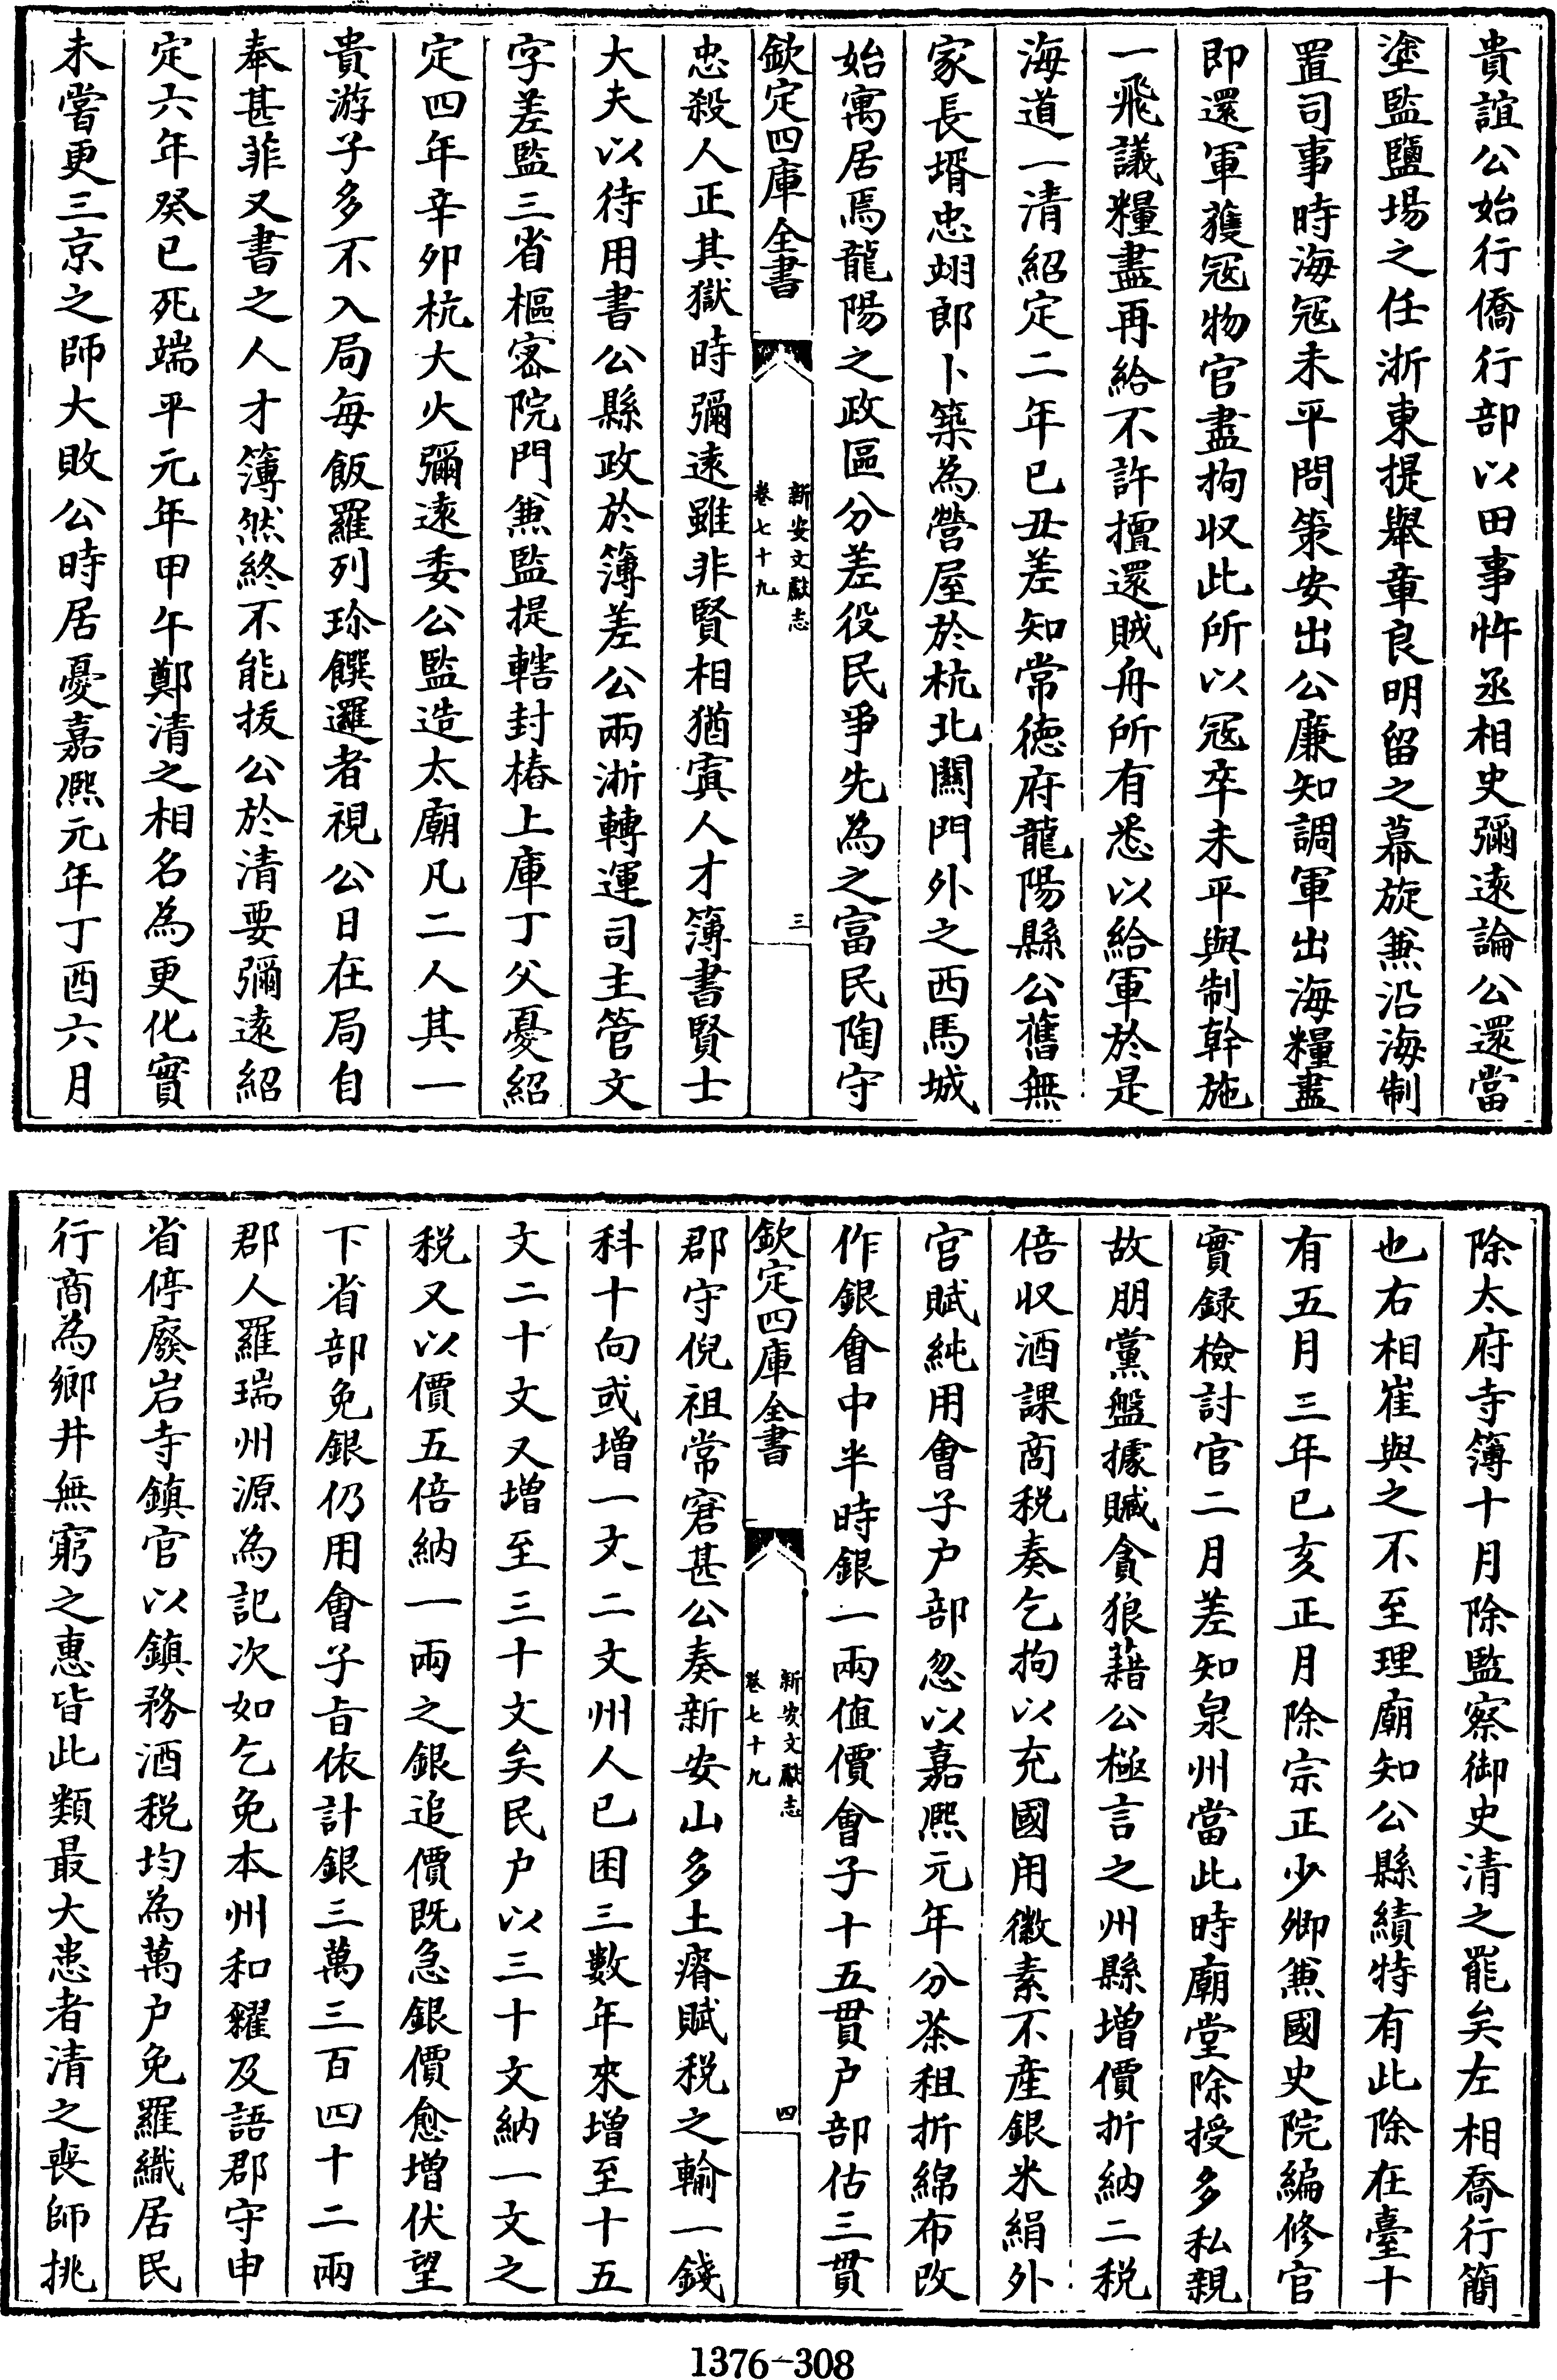 貴誼公始行僑行部以田事忤丞相史彌遠論公還當
塗監鹽場之任浙東提舉章良明留之幕旋兼沿海制
置司事時海冦未平問策安出公亷知調軍出海糧盡
即還軍獲冦物官盡拘收此所以冦卒未平與制幹施
一飛議糧盡再給不許擅還賊舟所有悉以給軍於是
海道一清紹定二年已丑差知常德府龍陽縣公舊無
家長壻忠翊郎卜築為營屋於杭北闗門外之西馬城
始寓居焉龍陽之政區分差役民爭先為之富民陶守
欽定四庫全書
新安文獻志
卷七十九
三
忠殺人正其獄時彌逺雖非賢相猶寘人才簿書賢士
大夫以待用書公縣政於簿差公兩浙轉運司主管文
字差監三省樞宻院門兼監提轄封樁上庫丁父憂紹
定四年辛卯杭大火彌逺委公監造太廟凡二人其一
貴游子多不入局每飯羅列珍饌邏者視公日在局自
奉甚菲又書之人才簿然終不能拔公於清要彌逺紹
定六年癸已死端平元年甲午鄭清之相名為更化實
未嘗更三京之師大敗公時居憂嘉熙元年丁酉六月
除太府寺簿十月除監察御史清之罷矣左相喬行簡
也右相崔與之不至理廟知公縣績特有此除在臺十
有五月三年已亥正月除宗正少卿兼國史院編修官
實録檢討官二月差知泉州當此時廟堂除授多私親
故朋黨盤據贓貪狼藉公極言之州縣增價折納二税
倍收酒課商税奏乞拘以充國用徽素不產銀米絹外
官賦純用會子户部忽以嘉熙元年分茶租折綿布改
作銀會中半時銀一兩值價會子十五貫户部估三貫
欽定四庫全書
新安文獻志
卷七十九
四
郡守倪祖常窘甚公奏新安山多土瘠賦税之輸一錢
科十向或增一文二文州人已困三數年來增至十五
文二十文又增至三十文矣民户以三十文納一文之
税又以價五倍納一兩之銀追價既急銀價愈增伏望
下省部免銀仍用會子㫖依計銀三萬三百四十二兩
郡人羅瑞州源為記次如乞免本州和糴及語郡守申
省停廢岩寺鎮官以鎮務酒税均為萬户免羅織居民
行商為鄉井無窮之惠皆此類最大患者清之喪師挑
1376-308